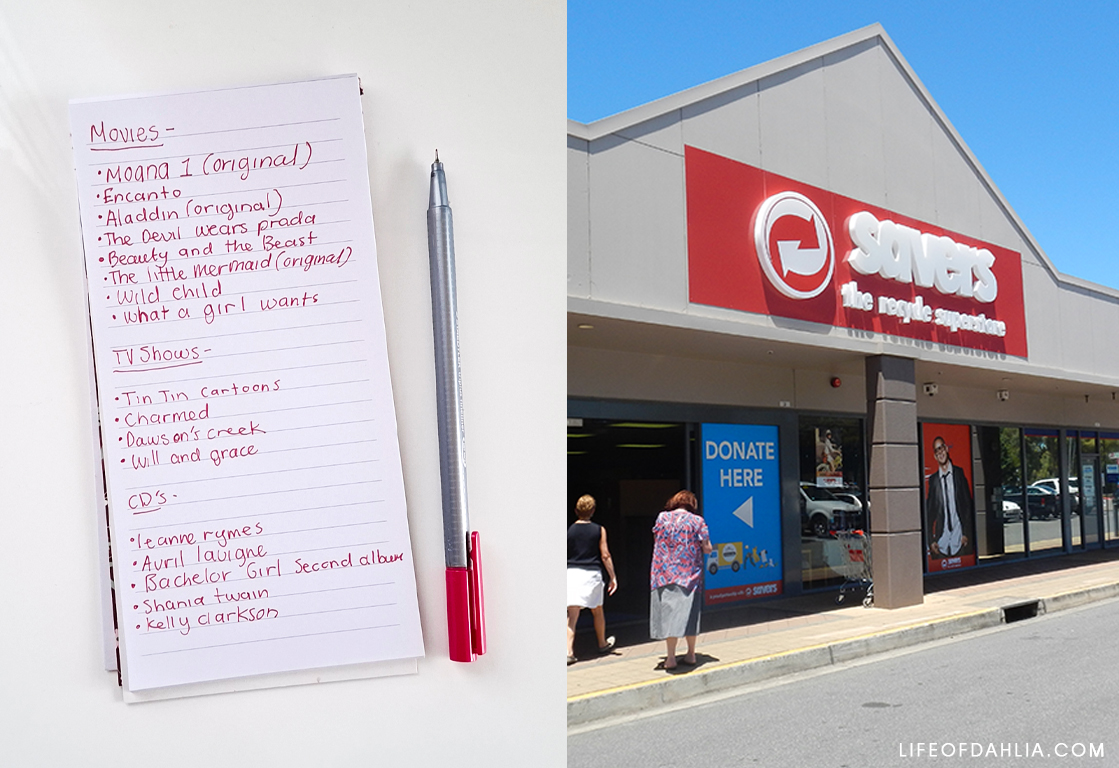 Movies -
• Moana 1 (original)
• Encanto
• Aladdin (original)
• The Devil wears prada
• Beauty and the Beast
• The little mermaid (original)
• Wild child
• what a girl wants
TV Shows -
• Tin Tin cartoons
• Charmed
• Dawson's creek
• Will and grace
CD's -
• leanne rymes
• Avril lavigne
• Bachelor Girl second album
• Shania twain
• kelly clarkson
savers
the recycle superstore
DONATE
HERE
savers
LIFEOFDAHLIA.COM